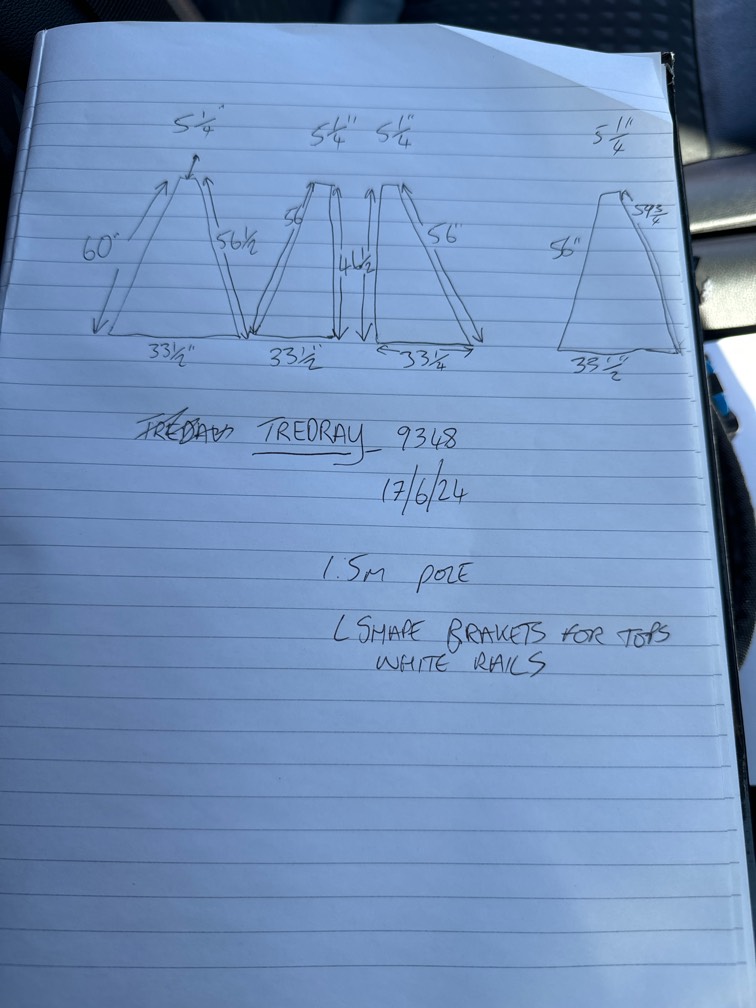 5 1/4" 5 1/4" 5 1/4" 5 1/4"
60" 56 1/2 56 56" 56" 59 3/4
33 1/2" 33 1/2" 33 1/4
TREDRAY 9348
17/6/24
1.5M POLE
L SHAPE BRAKETS FOR TOPS
WHITE RAILS